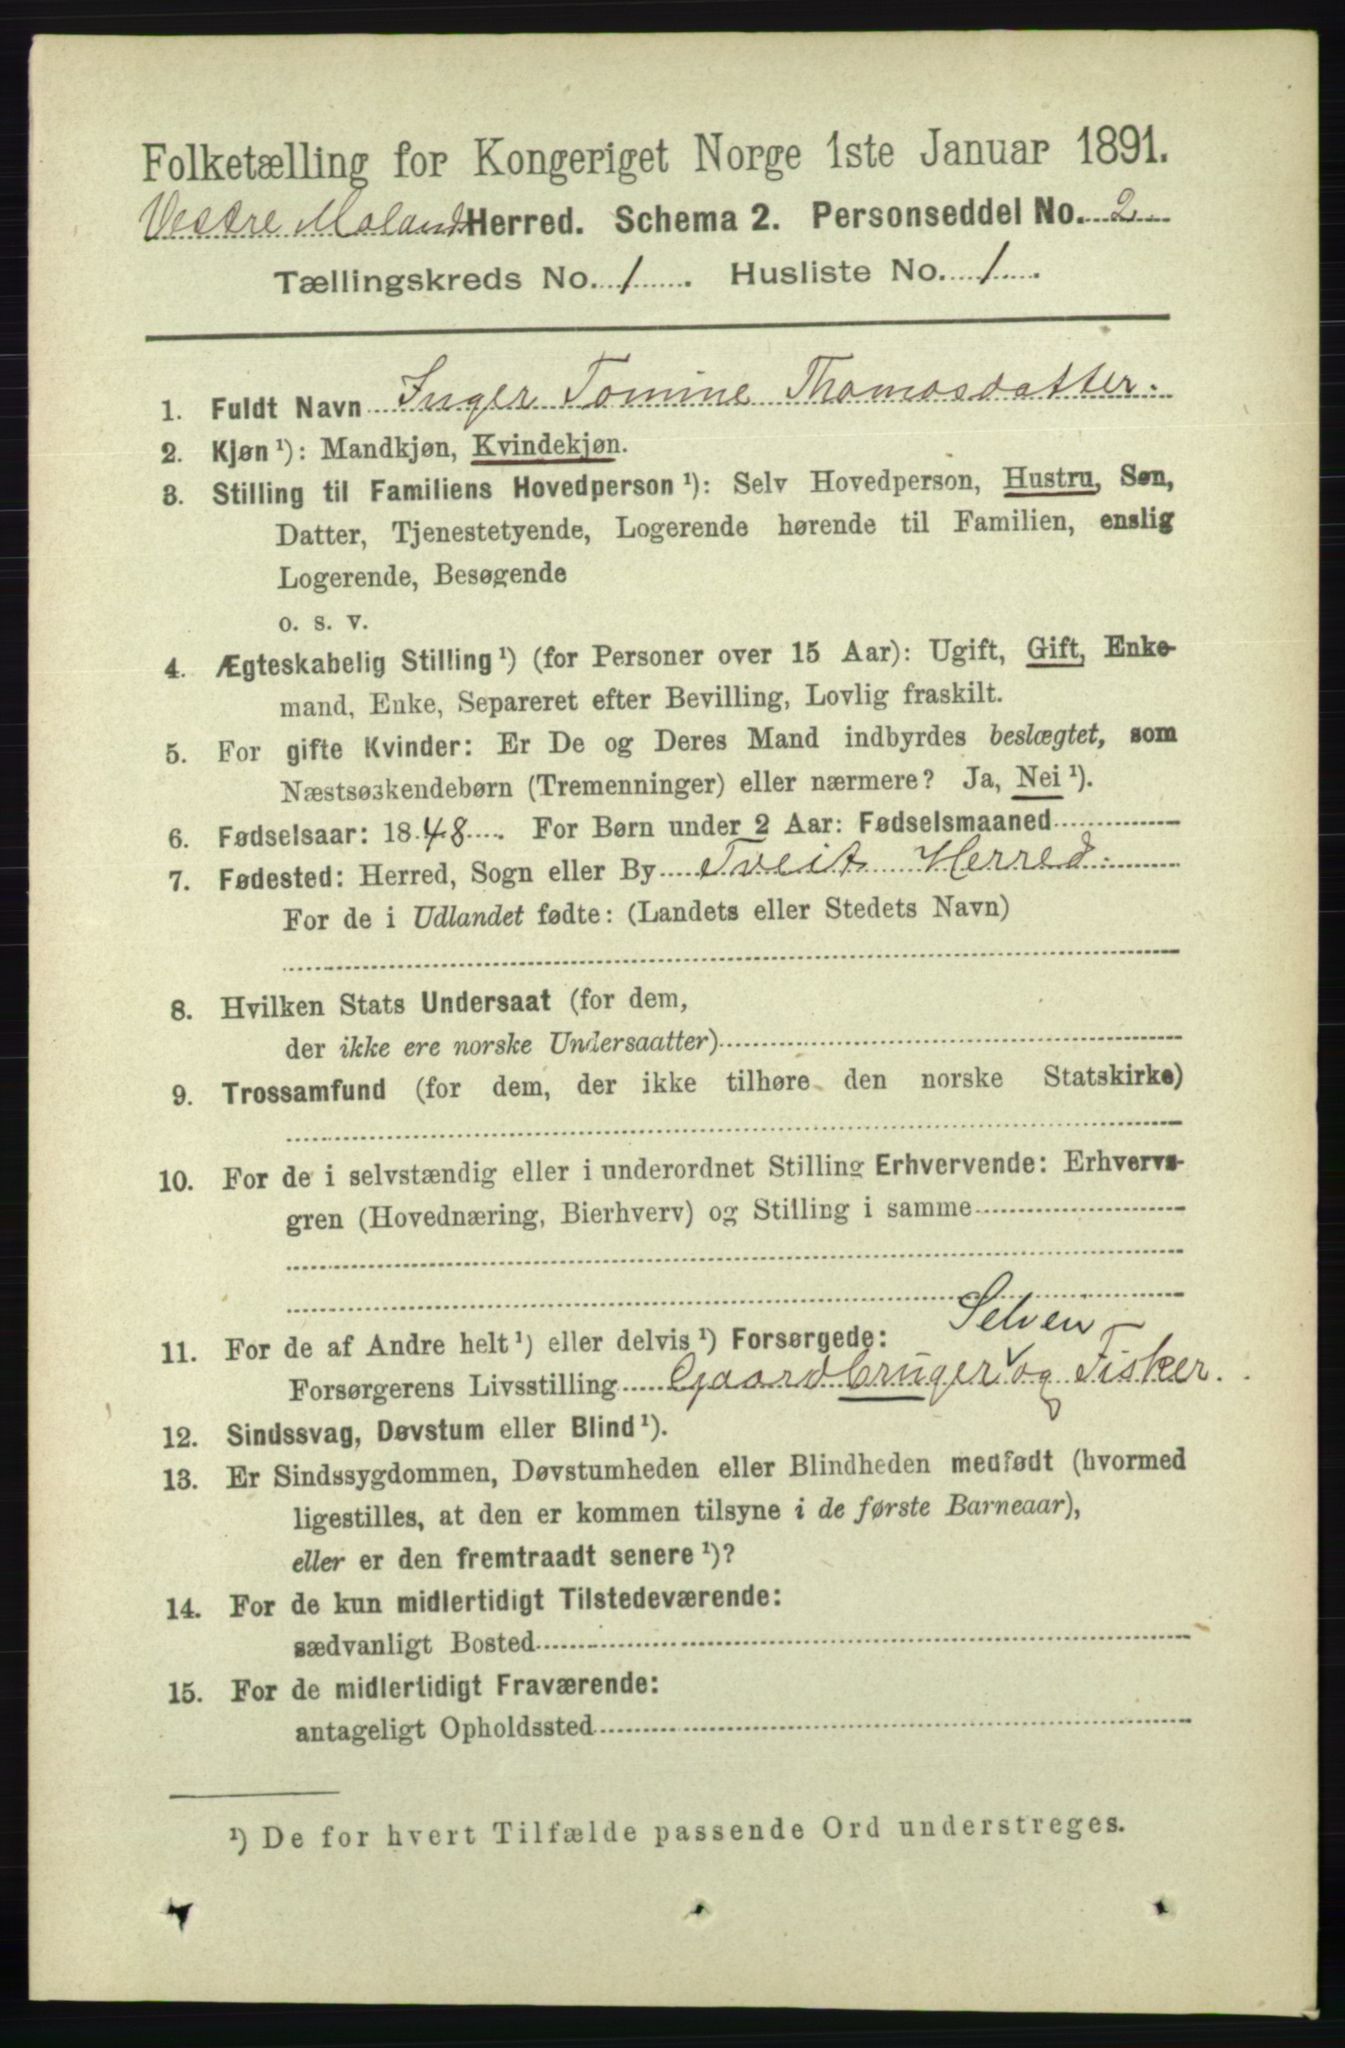 Folketælling for Kongeriget Norge 1ste Januar 1891.
Vestre Moland Herred. Schema 2. Personseddel No. 2
Tællingskreds No. 1. Husliste No. 1.
1. Fuldt Navn Inger Tomine Thomasdatter.
2. Kjøn ¹): Mandkjøn, Kvindekjøn.
3. Stilling til Familiens Hovedperson ¹): Selv Hovedperson, Hustru, Søn,
Datter, Tjenestetyende, Logerende hørende til Familien, enslig
Logerende, Besøgende
o. s. v.
4. Ægteskabelig Stilling ¹) (for Personer over 15 Aar): Ugift, Gift, Enke-
mand, Enke, Separeret efter Bevilling, Lovlig fraskilt.
5. For gifte Kvinder: Er De og Deres Mand indbyrdes beslægtet, som
Næstsøskendebørn (Tremenninger) eller nærmere? Ja, Nei ¹).
6. Fødselsaar: 1848. For Børn under 2 Aar: Fødselsmaaned
7. Fødested: Herred, Sogn eller By Tveit Herred.
For de i Udlandet fødte: (Landets eller Stedets Navn)
8. Hvilken Stats Undersaat (for dem,
der ikke ere norske Undersaatter)
9. Trossamfund (for dem, der ikke tilhøre den norske Statskirke)
10. For de i selvstændig eller i underordnet Stilling Erhvervende: Erhvervs-
gren (Hovednæring, Bierhverv) og Stilling i samme
Selvei-
11. For de af Andre helt ¹) eller delvis ¹) Forsørgede:
Forsørgerens Livsstilling Gaardbruger og Fisker.
12. Sindssvag, Døvstum eller Blind ¹).
13. Er Sindssygdommen, Døvstumheden eller Blindheden medfødt (hvormed
ligestilles, at den er kommen tilsyne i de første Barneaar),
eller er den fremtraadt senere ¹)?
14. For de kun midlertidigt Tilstedeværende:
sædvanligt Bosted
15. For de midlertidigt Fraværende:
antageligt Opholdssted
¹) De for hvert Tilfælde passende Ord understreges.